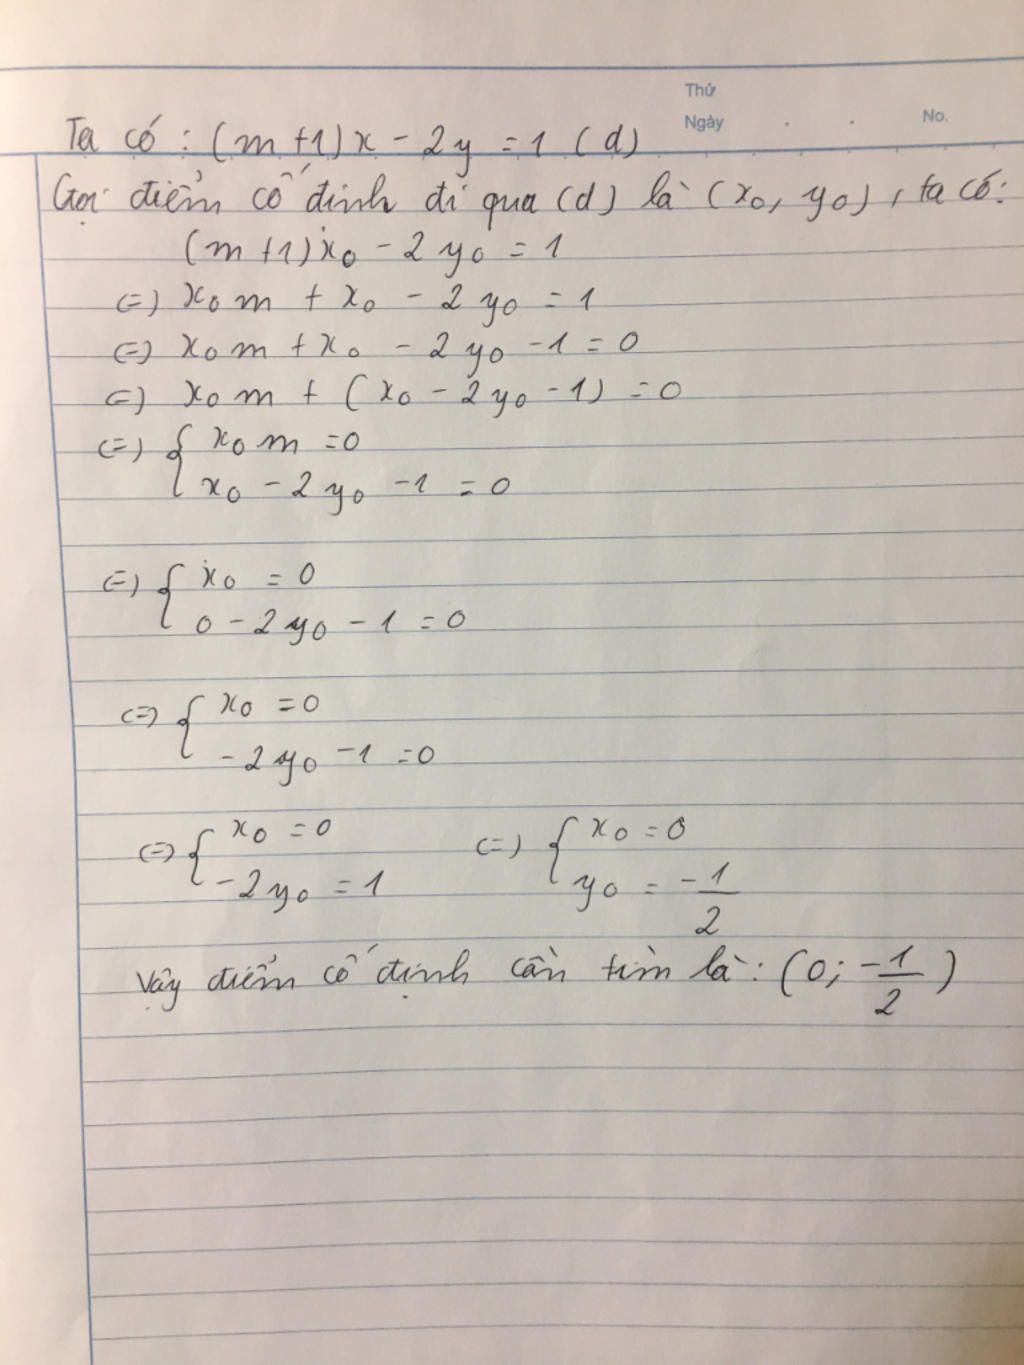 Thứ
Ngày . . No.
Ta có : (m+1)x - 2y = 1 (d)
Gọi điểm cố định đi qua (d) là (x₀, y₀), ta có:
(m+1)x₀ - 2y₀ = 1
(=) x₀m + x₀ - 2y₀ = 1
(=) x₀m + x₀ - 2y₀ - 1 = 0
(=) x₀m + (x₀ - 2y₀ - 1) = 0
(=) { x₀m = 0
x₀ - 2y₀ - 1 = 0
(=) { x₀ = 0
0 - 2y₀ - 1 = 0
(=) { x₀ = 0
-2y₀ - 1 = 0
(=) { x₀ = 0 (=) { x₀ = 0
-2y₀ = 1 y₀ = -1/2
Vậy điểm cố định cần tìm là: (0; -1/2)